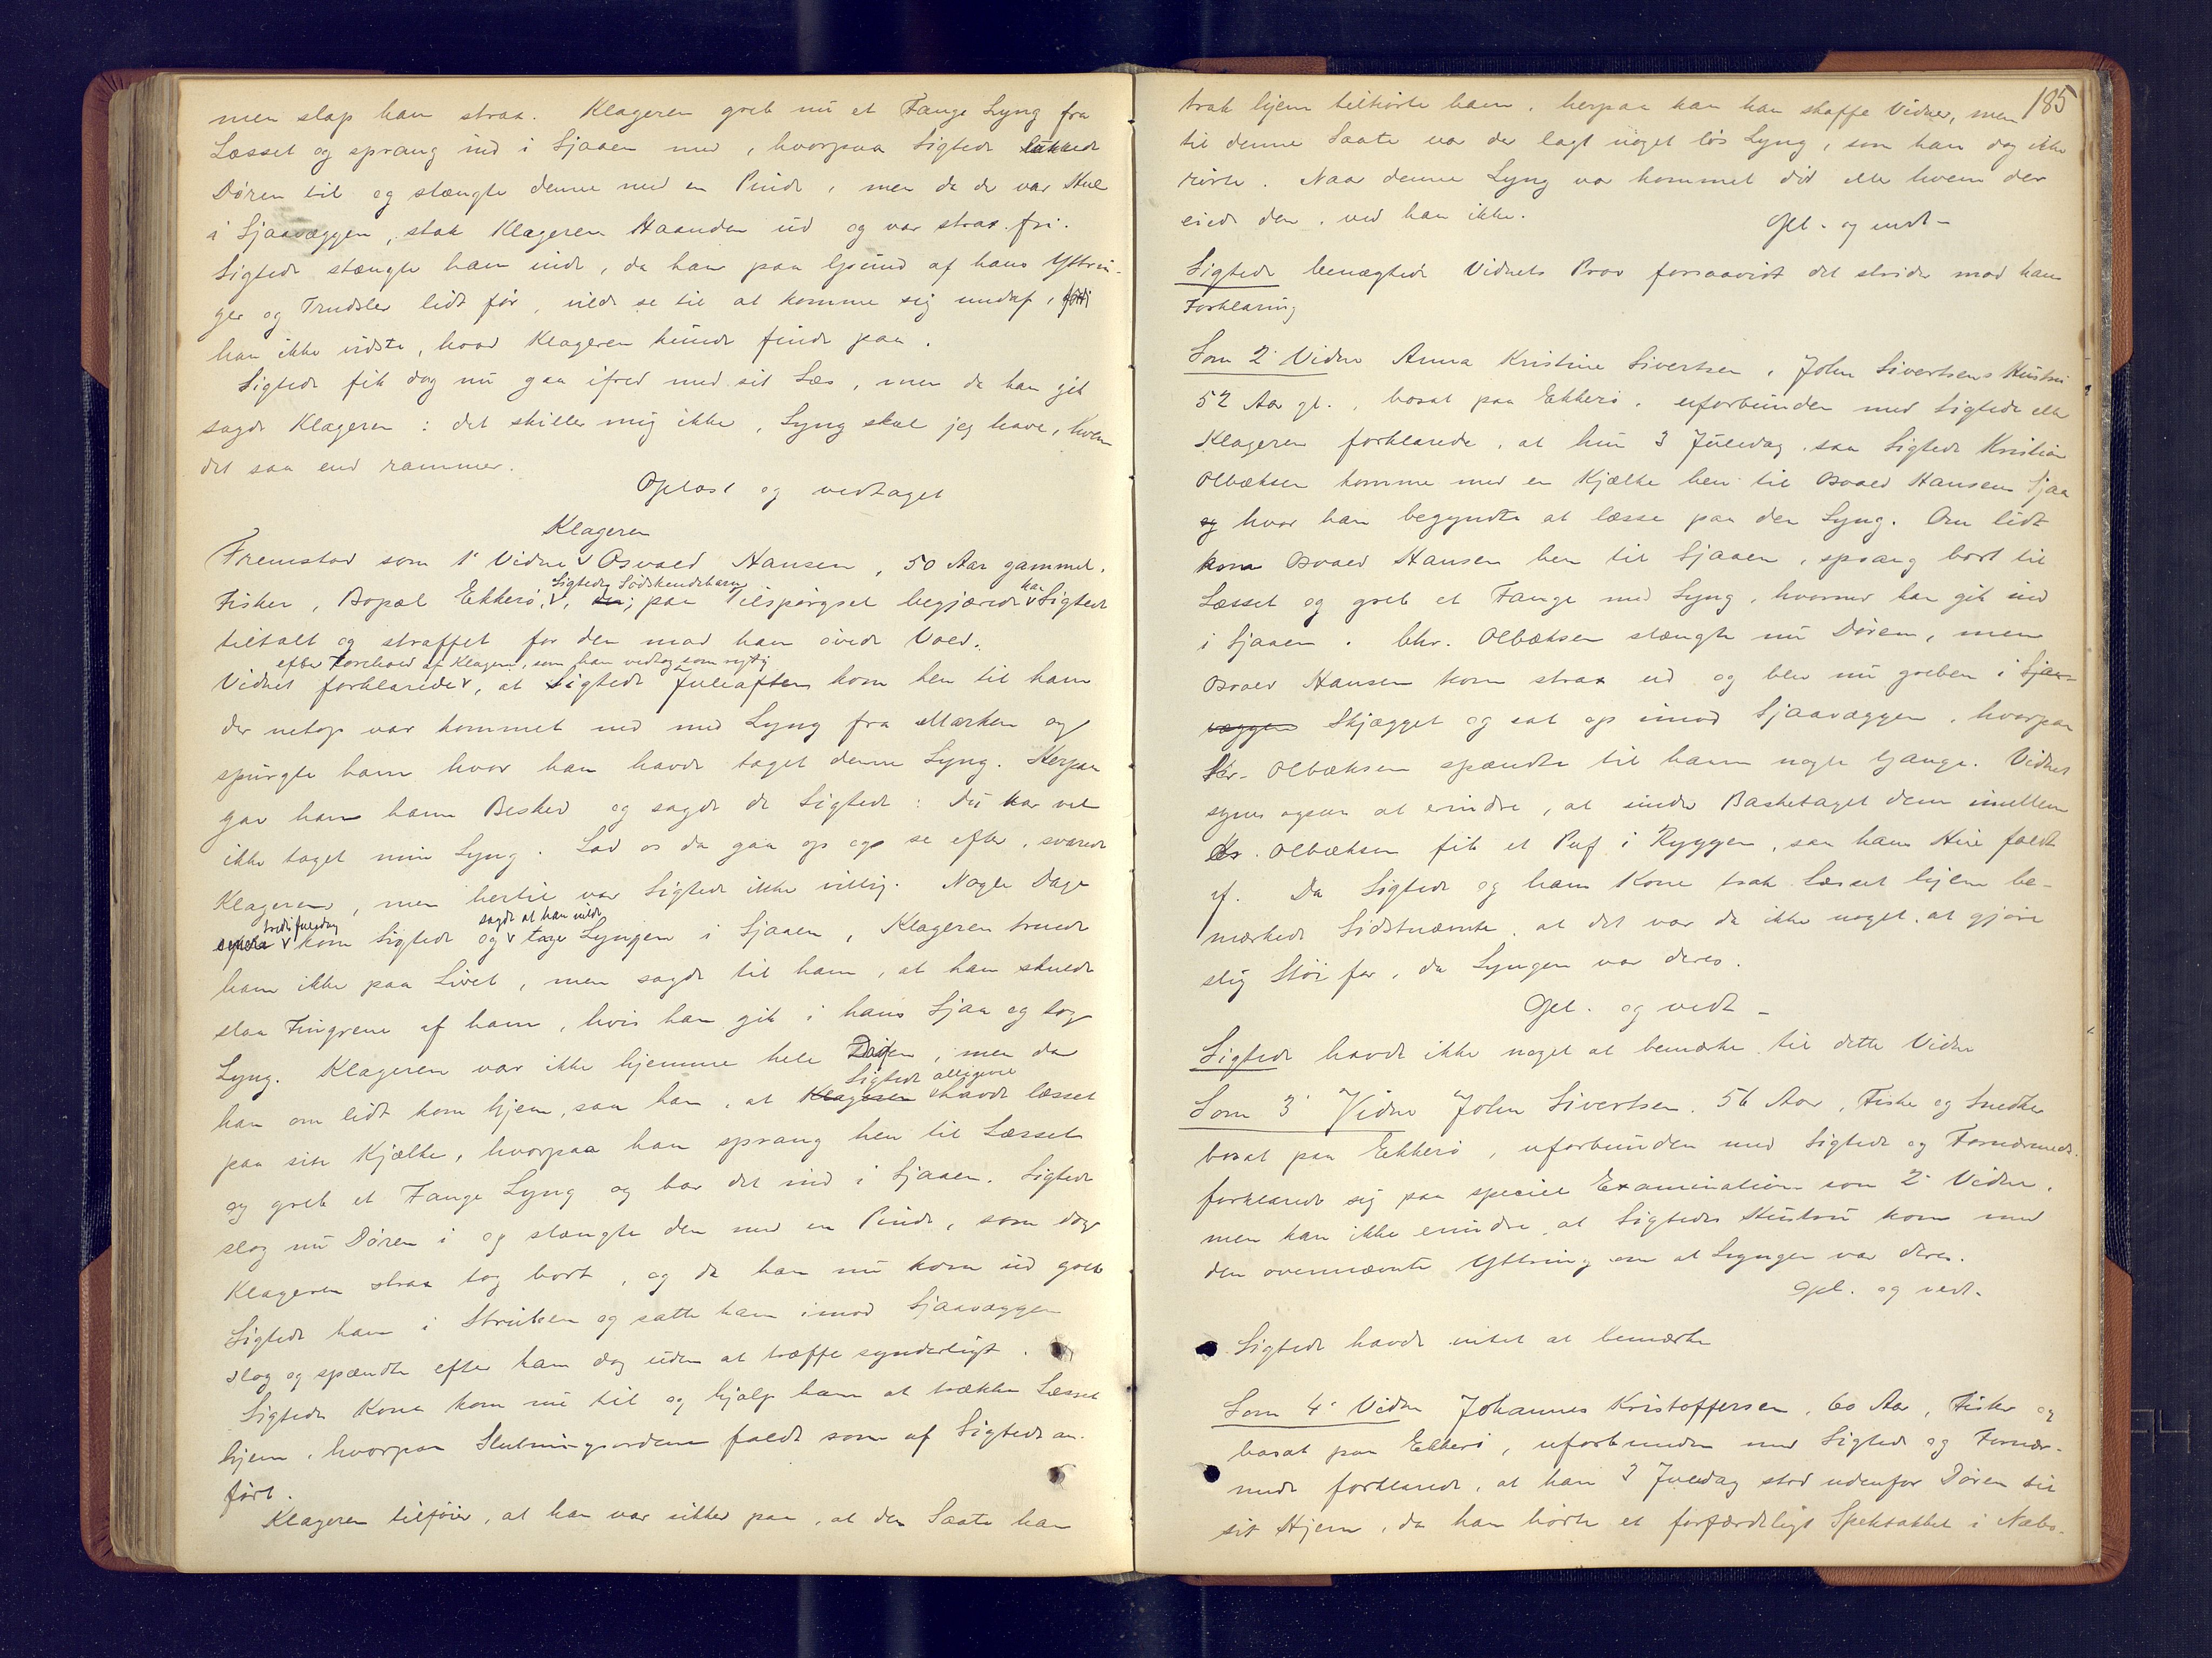 men slap ham straa. Klageren greb nu et Fange Lyng fra
Læsset og sprang ind i Sjaaen med, hvorpaa Sigtede lukkede
Døren til og stængte denne med en Pinde, men da der var Hul
i Sjaavæggen, stak Klageren Haanden ud og var strax fri.
Sigtede stængte ham inde, da han paa Grund af hans Yttrin-
ger og Trudsler lidt før, vilde se til at komme sig undaf, fordi
han ikke vidste, hvad Klageren kunde finde paa.
Sigtede fik dog nu gaa ifred med sit Læs, men da han gik
sagde Klageren: det skiller mig ikke, Lyng skal jeg have, hvem
det saa end rammer.
Oplæst og vedtaget
Klageren
Fremstod som 1' Vidne Osvald Hansen, 50 Aar gammel,
Sigtedes Sødskendebarn han
Fisker, Bopæl Ekkerö, paa Tilspørgsel begjærede Sigtede
tiltalt og straffet for den mod ham øvede Vold.
efter Forehold af Klagen, som han vedtog som rigtig
Vidnet forklarede, at Sigtede Juleaften kom hen til ham
der netop var kommet ned med Lyng fra Marken og
spurgte ham hvor han havde taget denne Lyng. Herpaa
gav han ham Besked og sagde da Sigtede: Du har vel
ikke taget min Lyng. Lad os da gaa op og se efter, svarede
Klageren, men hertil var Sigtede ikke villig. Nogle Dage
tredie Juledag sagde at han vilde
kom Sigtede og tage Lyngen i Sjaaen, Klageren truede
ham ikke paa Livet, men sagde til ham, at han skulde
slaa Fingrene af ham, hvis han gik i hans Sjaa og tog
Lyng. Klageren var ikke hjemme hele Dagen, men da
Sigtede alligevel
han om lidt kom hjem, saa han, at Klageren havde læsset
paa sin Kjælke, hvorpaa han sprang hen til Læsset
og greb et Fange Lyng og bar det ind i Sjaaen. Sigtede
slog nu Døren i og stængte den med en Pinde, som dog
Klageren straa tog bort, og da han nu kom ud greb
Sigtede ham i Struben og satte ham imod Sjaavæggen
slog og spændte efter ham dog uden at træffe synderligt.
Sigtedes Kone kom nu til og hjalp ham at trække Læsset
hjem, hvorpaa Slutningsordene faldt som af Sigtede an-
ført.
Klageren tilføier, at han var sikker paa, at den Saate han
185
trak hjem tilhørte ham, herpaa kan han skaffe Vidner, men
til denne Saate var der lagt noget løs Lyng, som han dog ikke
rørte. Naar denne Lyng var kommet did eller hvem der
eiede den, ved han ikke.
Opl. og vedt-
Sigtede benægtede Vidnets Prov forsaavidt det strider mod hans
Forklaring
Som 2' Vidne Anna Kristine Sivertsen, John Sivertsens Hustru
52 Aar gl., bosat paa Ekkerö, uforbunden med Sigtede eller
Klageren forklarede, at hun 3 Juledag saa Sigtede Kristian
Olbæksen komme med en Kjælke hen til Osvald Hansens Sjaa
og hvor han begyndte at læsse paa den Lyng. Om lidt
kom Osvald Hansen hen til Sjaaen, sprang bort til
Læsset og greb et Fange med Lyng, hvormed han gik ind
i Sjaaen. Chr. Olbæksen stængte nu Døren, men
Osvald Hansen kom strax ud og blev nu greben i Sjaa-
væggen Skjægget og sat op imod Sjaavæggen, hvorpaa
Olbæksen spændte til ham nogle Gange. Vidnet
synes ogsaa at erindre, at under Basketaget dem imellem
Olbæksen fik et Puf i Ryggen, saa hans Hue faldt
af. Da Sigtede og hans Kone trak Læsset hjem be-
mærkede Sidstnævnte, at det var da ikke noget at gjøre
slig Støi for, da Lyngen var deres.
Opl. og vedt-
Sigtede havde ikke noget at bemærke til dette Vidne
Som 3' Vidne John Sivertsen, 56 Aar, Fisker og Snedker
bosat paa Ekkerö, uforbunden med Sigtede og Fornærmede.
forklarede sig paa speciel Examination som 2' Vidne,
men kan ikke erindre, at Sigtedes Hustru kom med
den ovennævnte Yttring om at Lyngen var deres.
Opl. og vedt.
Sigtede havde intet at bemærke
Som 4' Vidne Johannes Kristoffersen, 60 Aar, Fisker og
bosat paa Ekkerö, uforbunden med Sigtede og Fornær-
mede forklarede, at han 3 Juledag stod udenfor Døren til
sit Hjem, da han hørte et forfærdeligt Spektakkel i Nabo-